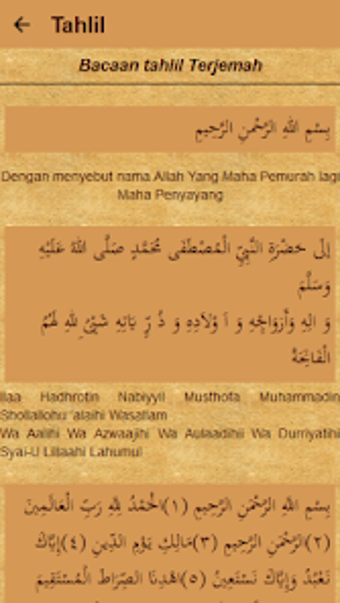 Tahlil
Bacaan tahlil Terjemah
بِسْمِ اللهِ الرَّحْمنِ الرَّحِيمِ
Dengan menyebut nama Allah Yang Maha Pemurah lagi
Maha Penyayang
اِلَى حَضْرَةِ النَّبِيِّ الْمُصْطَفَى مُحَمَّدٍ صَلَّى اللهُ عَلَيْهِ
وَسَلَّمَ
وَ الِهِ وَأَزْوَاجِهِ وَ اَ وْلاَدِهِ وَ ذُ رِّ يَاتِهِ شَيْئٌ ِللهِ لَهُمُ
الْفَاتِحَةُ
Ilaa Hadhrotin Nabiyyil Musthofa Muhammadin
Shollallohu 'alaihi Wasallam
Wa Aalihi Wa Azwaajihi Wa Aulaadihii Wa Durriyatihi
Syai-U Lillaahi Lahumul
بِسْمِ اللهِ الرَّحْمنِ الرَّحِيمِ (١)الْحَمْدُ للهِ رَبِّ الْعَالَمِينَ
(٢)الرَّحْمنِ الرَّحِيمِ (٣)مَالِكِ يَوْمِ الدِّينِ (٤)إِيَّاكَ
نَعْبُدُ وَإِيَّاكَ نَسْتَعِينُ (٥)اهْدِنَا الصِّرَاطَ الْمُسْتَقِيمَ